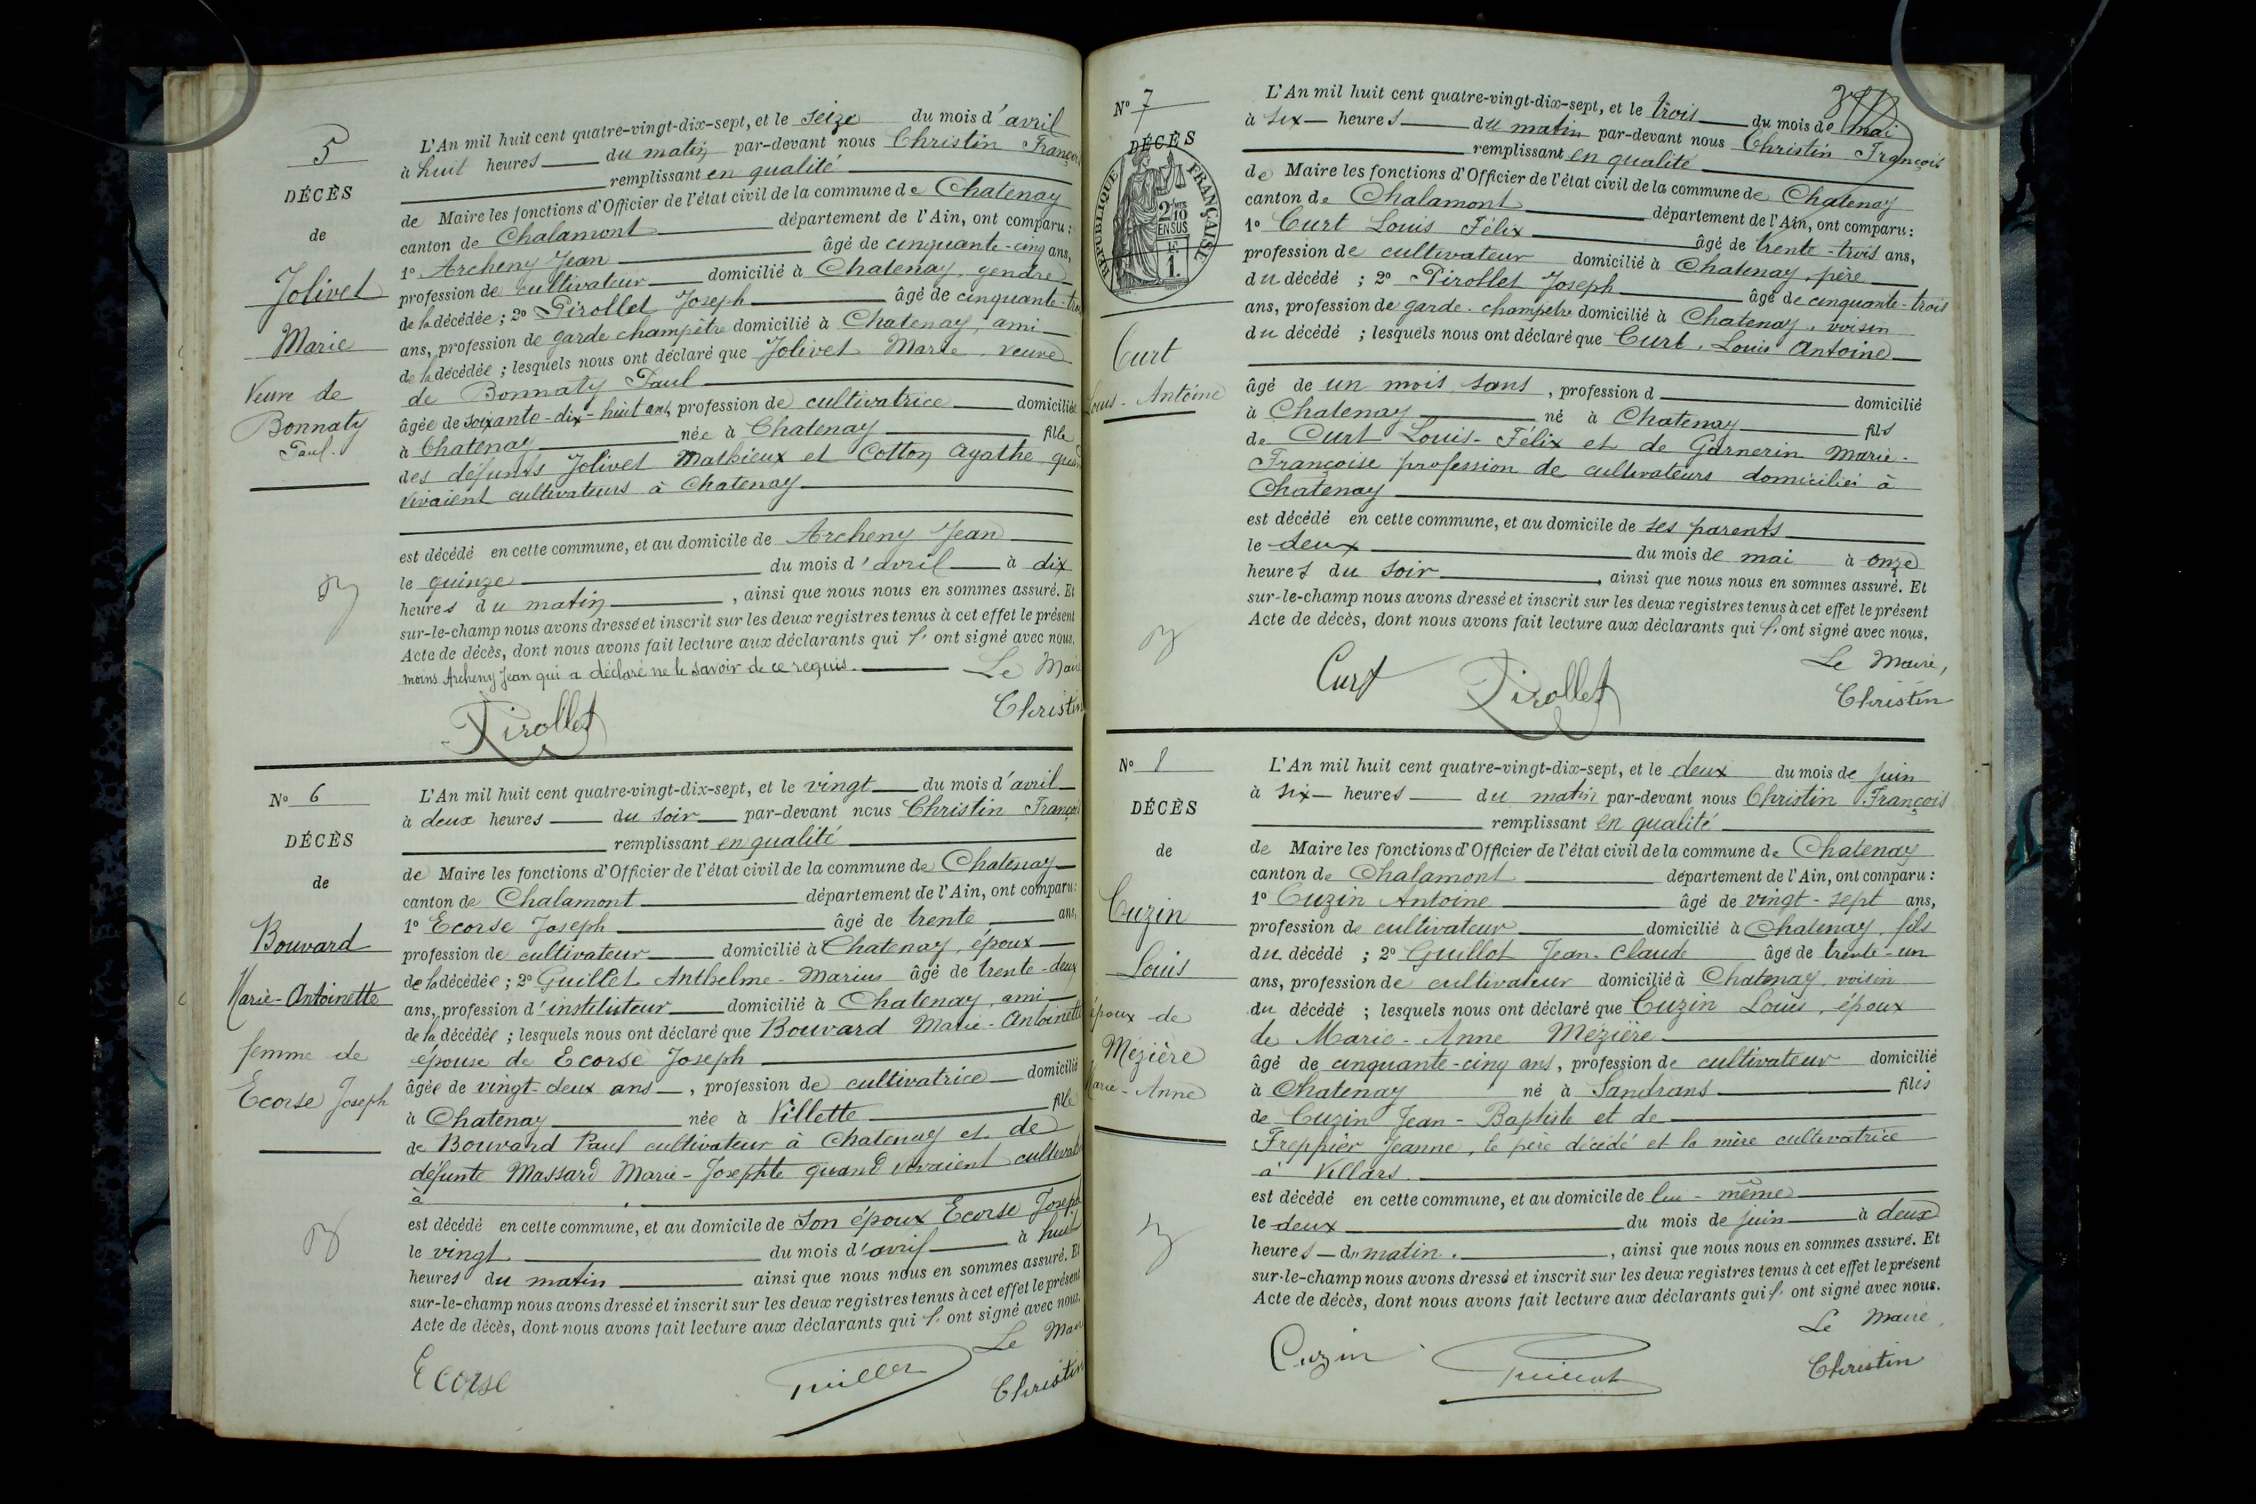 5
DÉCÈS
de
Jolivet
Marie
Veuve de
Bonnaty
Paul.
L'An mil huit cent quatre-vingt-dix-sept, et le seize du mois d'avril
à huit heures du matin par-devant nous Christin François
remplissant en qualité
de Maire les fonctions d'Officier de l'état civil de la commune de Chatenay
canton de Chalamont département de l'Ain, ont comparu:
1º Archeny Jean âgé de cinquante-cinq ans,
profession de cultivateur domicilié à Chatenay, gendre
de la décédée; 2º Pirollet Joseph âgé de cinquante-trois
ans, profession de garde champêtre domicilié à Chatenay, ami
de la décédée; lesquels nous ont déclaré que Jolivet Marie, veuve
de Bonnaty Paul
âgée de soixante-dix-huit ans, profession de cultivatrice domiciliée
à Chatenay née à Chatenay fille
des défunts Jolivet Mathieux et Cotton Agathe quand
vivaient cultivateurs à Chatenay
est décédé en cette commune, et au domicile de Archeny Jean
le quinze du mois d'avril à dix
heures du matin, ainsi que nous nous en sommes assuré. Et
sur-le-champ nous avons dressé et inscrit sur les deux registres tenus à cet effet le présent
Acte de décès, dont nous avons fait lecture aux déclarants qui l' ont signé avec nous.
moins Archeny Jean qui a déclaré ne le savoir de ce requis. Le Maire
Christin
Pirollet
Nº 6
DÉCÈS
de
Bouvard
Marie-Antoinette
femme de
Ecorse Joseph
L'An mil huit cent quatre-vingt-dix-sept, et le vingt du mois d'avril
à deux heures du soir par-devant nous Christin François
remplissant en qualité
de Maire les fonctions d'Officier de l'état civil de la commune de Chatenay
canton de Chalamont département de l'Ain, ont comparu:
1º Ecorse Joseph âgé de trente ans,
profession de cultivateur domicilié à Chatenay, époux
de la décédée; 2º Guillet Anthelme-Marius âgé de trente-deux
ans, profession d'instituteur domicilié à Chatenay, ami
de la décédée; lesquels nous ont déclaré que Bouvard Marie-Antoinette
épouse de Ecorse Joseph
âgée de vingt-deux ans, profession de cultivatrice domiciliée
à Chatenay née à Villette fille
de Bouvard Paul cultivateur à Chatenay et de
défunte Massard Marie-Josephte quand vivaient cultivateurs
à
est décédé en cette commune, et au domicile de son époux Ecorse Joseph
le vingt du mois d'avril à huit
heures du matin ainsi que nous nous en sommes assuré. Et
sur-le-champ nous avons dressé et inscrit sur les deux registres tenus à cet effet le présent
Acte de décès, dont nous avons fait lecture aux déclarants qui l' ont signé avec nous.
Le Maire
Ecorse Guillet Christin
Nº 7
DÉCÈS
RÉPUBLIQUE FRANÇAISE
2/10
EN SUS
1F.
Curt
Louis-Antoine
L'An mil huit cent quatre-vingt-dix-sept, et le trois du mois de mai
à six heures du matin par-devant nous Christin François
remplissant en qualité
de Maire les fonctions d'Officier de l'état civil de la commune de Chatenay
canton de Chalamont département de l'Ain, ont comparu:
1º Curt Louis Félix âgé de trente-trois ans,
profession de cultivateur domicilié à Chatenay, père
du décédé; 2º Pirollet Joseph âgé de cinquante-trois
ans, profession de garde-champêtre domicilié à Chatenay, voisin
du décédé; lesquels nous ont déclaré que Curt, Louis Antoine
âgé de un mois sans, profession d domicilié
à Chatenay né à Chatenay fils
de Curt Louis-Félix et de Garnerin Marie-
Françoise profession de cultivateurs domiciliés à
Chatenay
est décédé en cette commune, et au domicile de ses parents
le deux du mois de mai à onze
heures du soir, ainsi que nous nous en sommes assuré. Et
sur-le-champ nous avons dressé et inscrit sur les deux registres tenus à cet effet le présent
Acte de décès, dont nous avons fait lecture aux déclarants qui l' ont signé avec nous.
Le Maire,
Curt Pirollet Christin
Nº 8
DÉCÈS
de
Cuzin
Louis
époux de
Mézière
Marie-Anne
L'An mil huit cent quatre-vingt-dix-sept, et le deux du mois de juin
à six heures du matin par-devant nous Christin François
remplissant en qualité
de Maire les fonctions d'Officier de l'état civil de la commune de Chatenay
canton de Chalamont département de l'Ain, ont comparu:
1º Cuzin Antoine âgé de vingt-sept ans,
profession de cultivateur domicilié à Chatenay, fils
du décédé; 2º Guillot Jean-Claude âgé de trente-un
ans, profession de cultivateur domicilié à Chatenay, voisin
du décédé; lesquels nous ont déclaré que Cuzin Louis, époux
de Marie-Anne Mézière
âgé de cinquante-cinq ans, profession de cultivateur domicilié
à Chatenay né à Sandrans fils
de Cuzin Jean-Baptiste et de
Freppier Jeanne, le père décédé et la mère cultivatrice
à Villars.
est décédé en cette commune, et au domicile de lui-même
le deux du mois de juin à deux
heures du matin., ainsi que nous nous en sommes assuré. Et
sur-le-champ nous avons dressé et inscrit sur les deux registres tenus à cet effet le présent
Acte de décès, dont nous avons fait lecture aux déclarants qui l' ont signé avec nous.
Le Maire,
Cuzin Guillot Christin